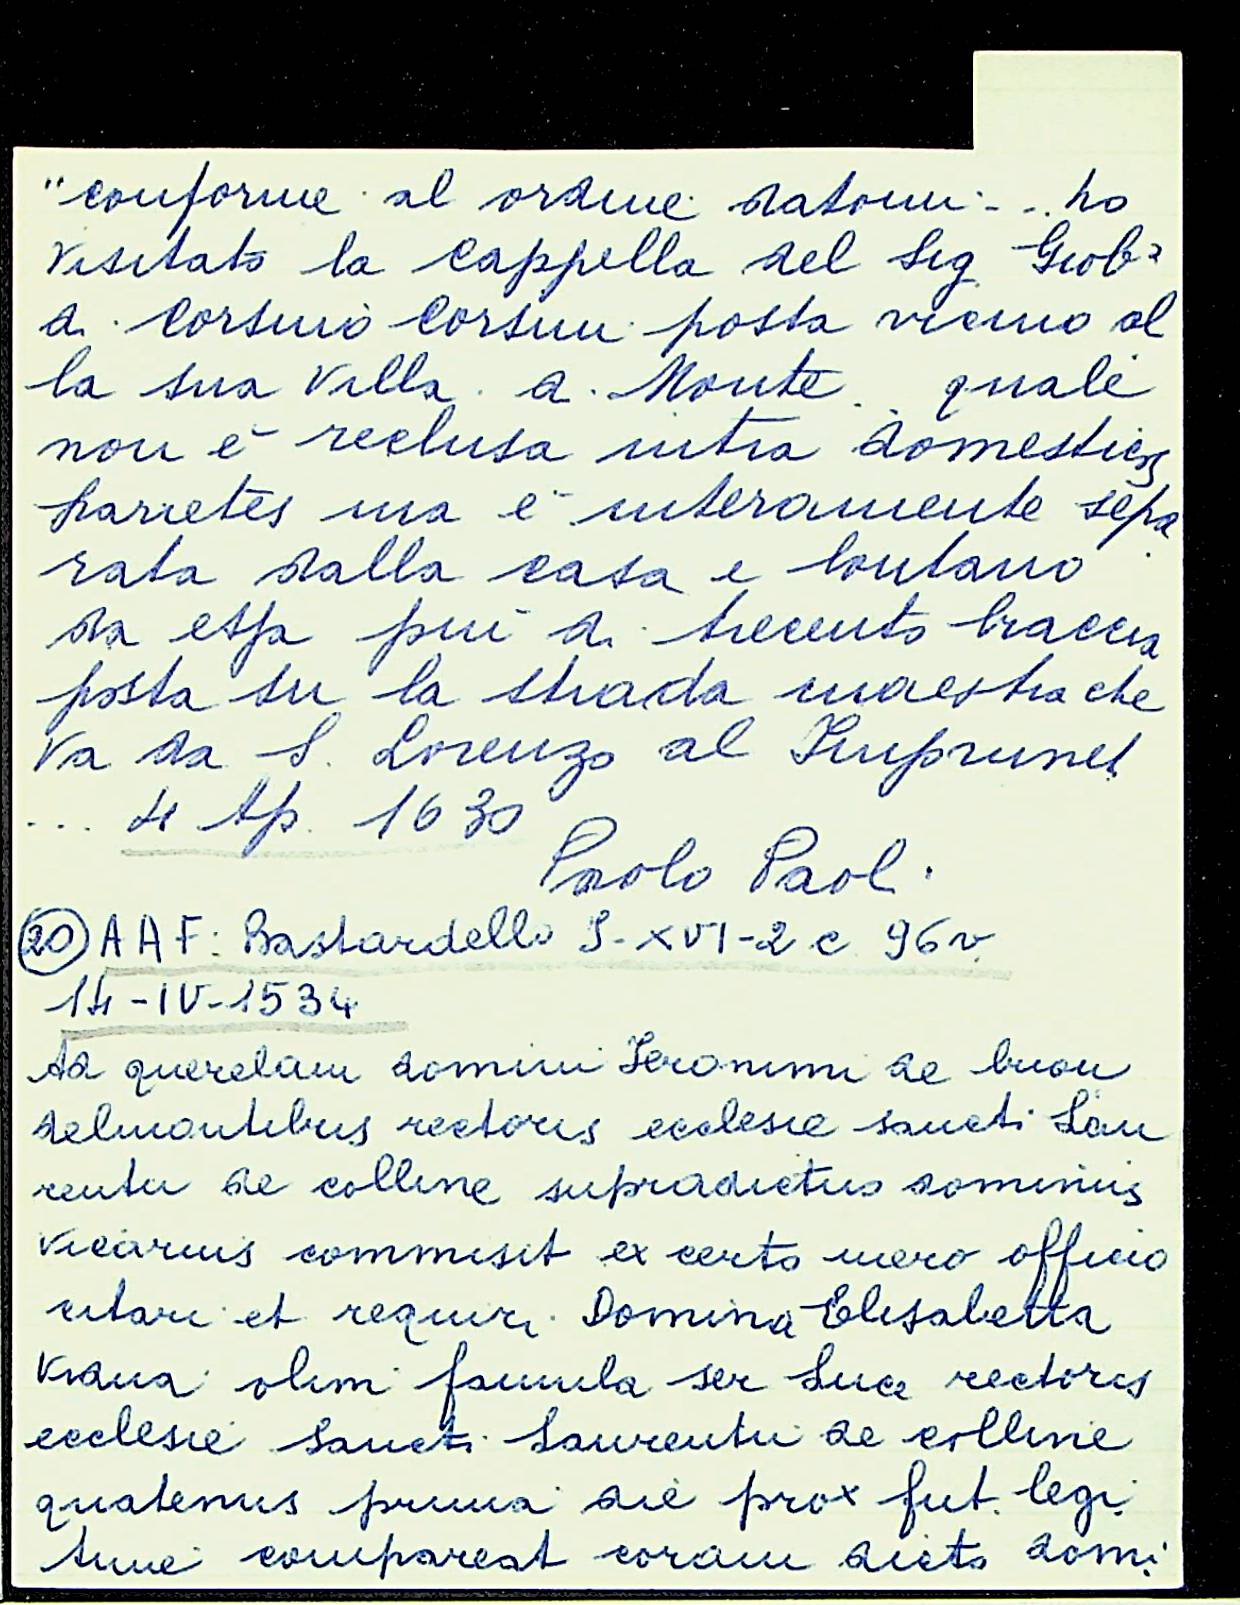 "conforme al ordine datomi - .. ho
visitato la cappella del Sig Giob?
di Corsino Corsini posta vicino al
la sua Villa di Monte . quale
non è reclusa intra domesticos
parietes ma è interamente sepa
rata dalla casa e lontano
da essa più di trecento braccia
posta su la strada maestra che
va da S. Lorenzo al Imprunet
... 4 Ap. 1630
Paolo Paol.
20 AAF: Bastardello S-XVI-2 c 96v
14-IV-1534
Ad querelam domini Ieronimi de buon
delmontibus rectoris ecclesie sancti Lau
rentii de colline supradictus dominus
vicarius commisit ex certo mero officio
citari et requiri. Domina Elisabetta
vidua olim famula ser Luce rectoris
ecclesie sancti Laurentii de colline
quatenus prima die prox fut. legi
time compareat coram dicto domi